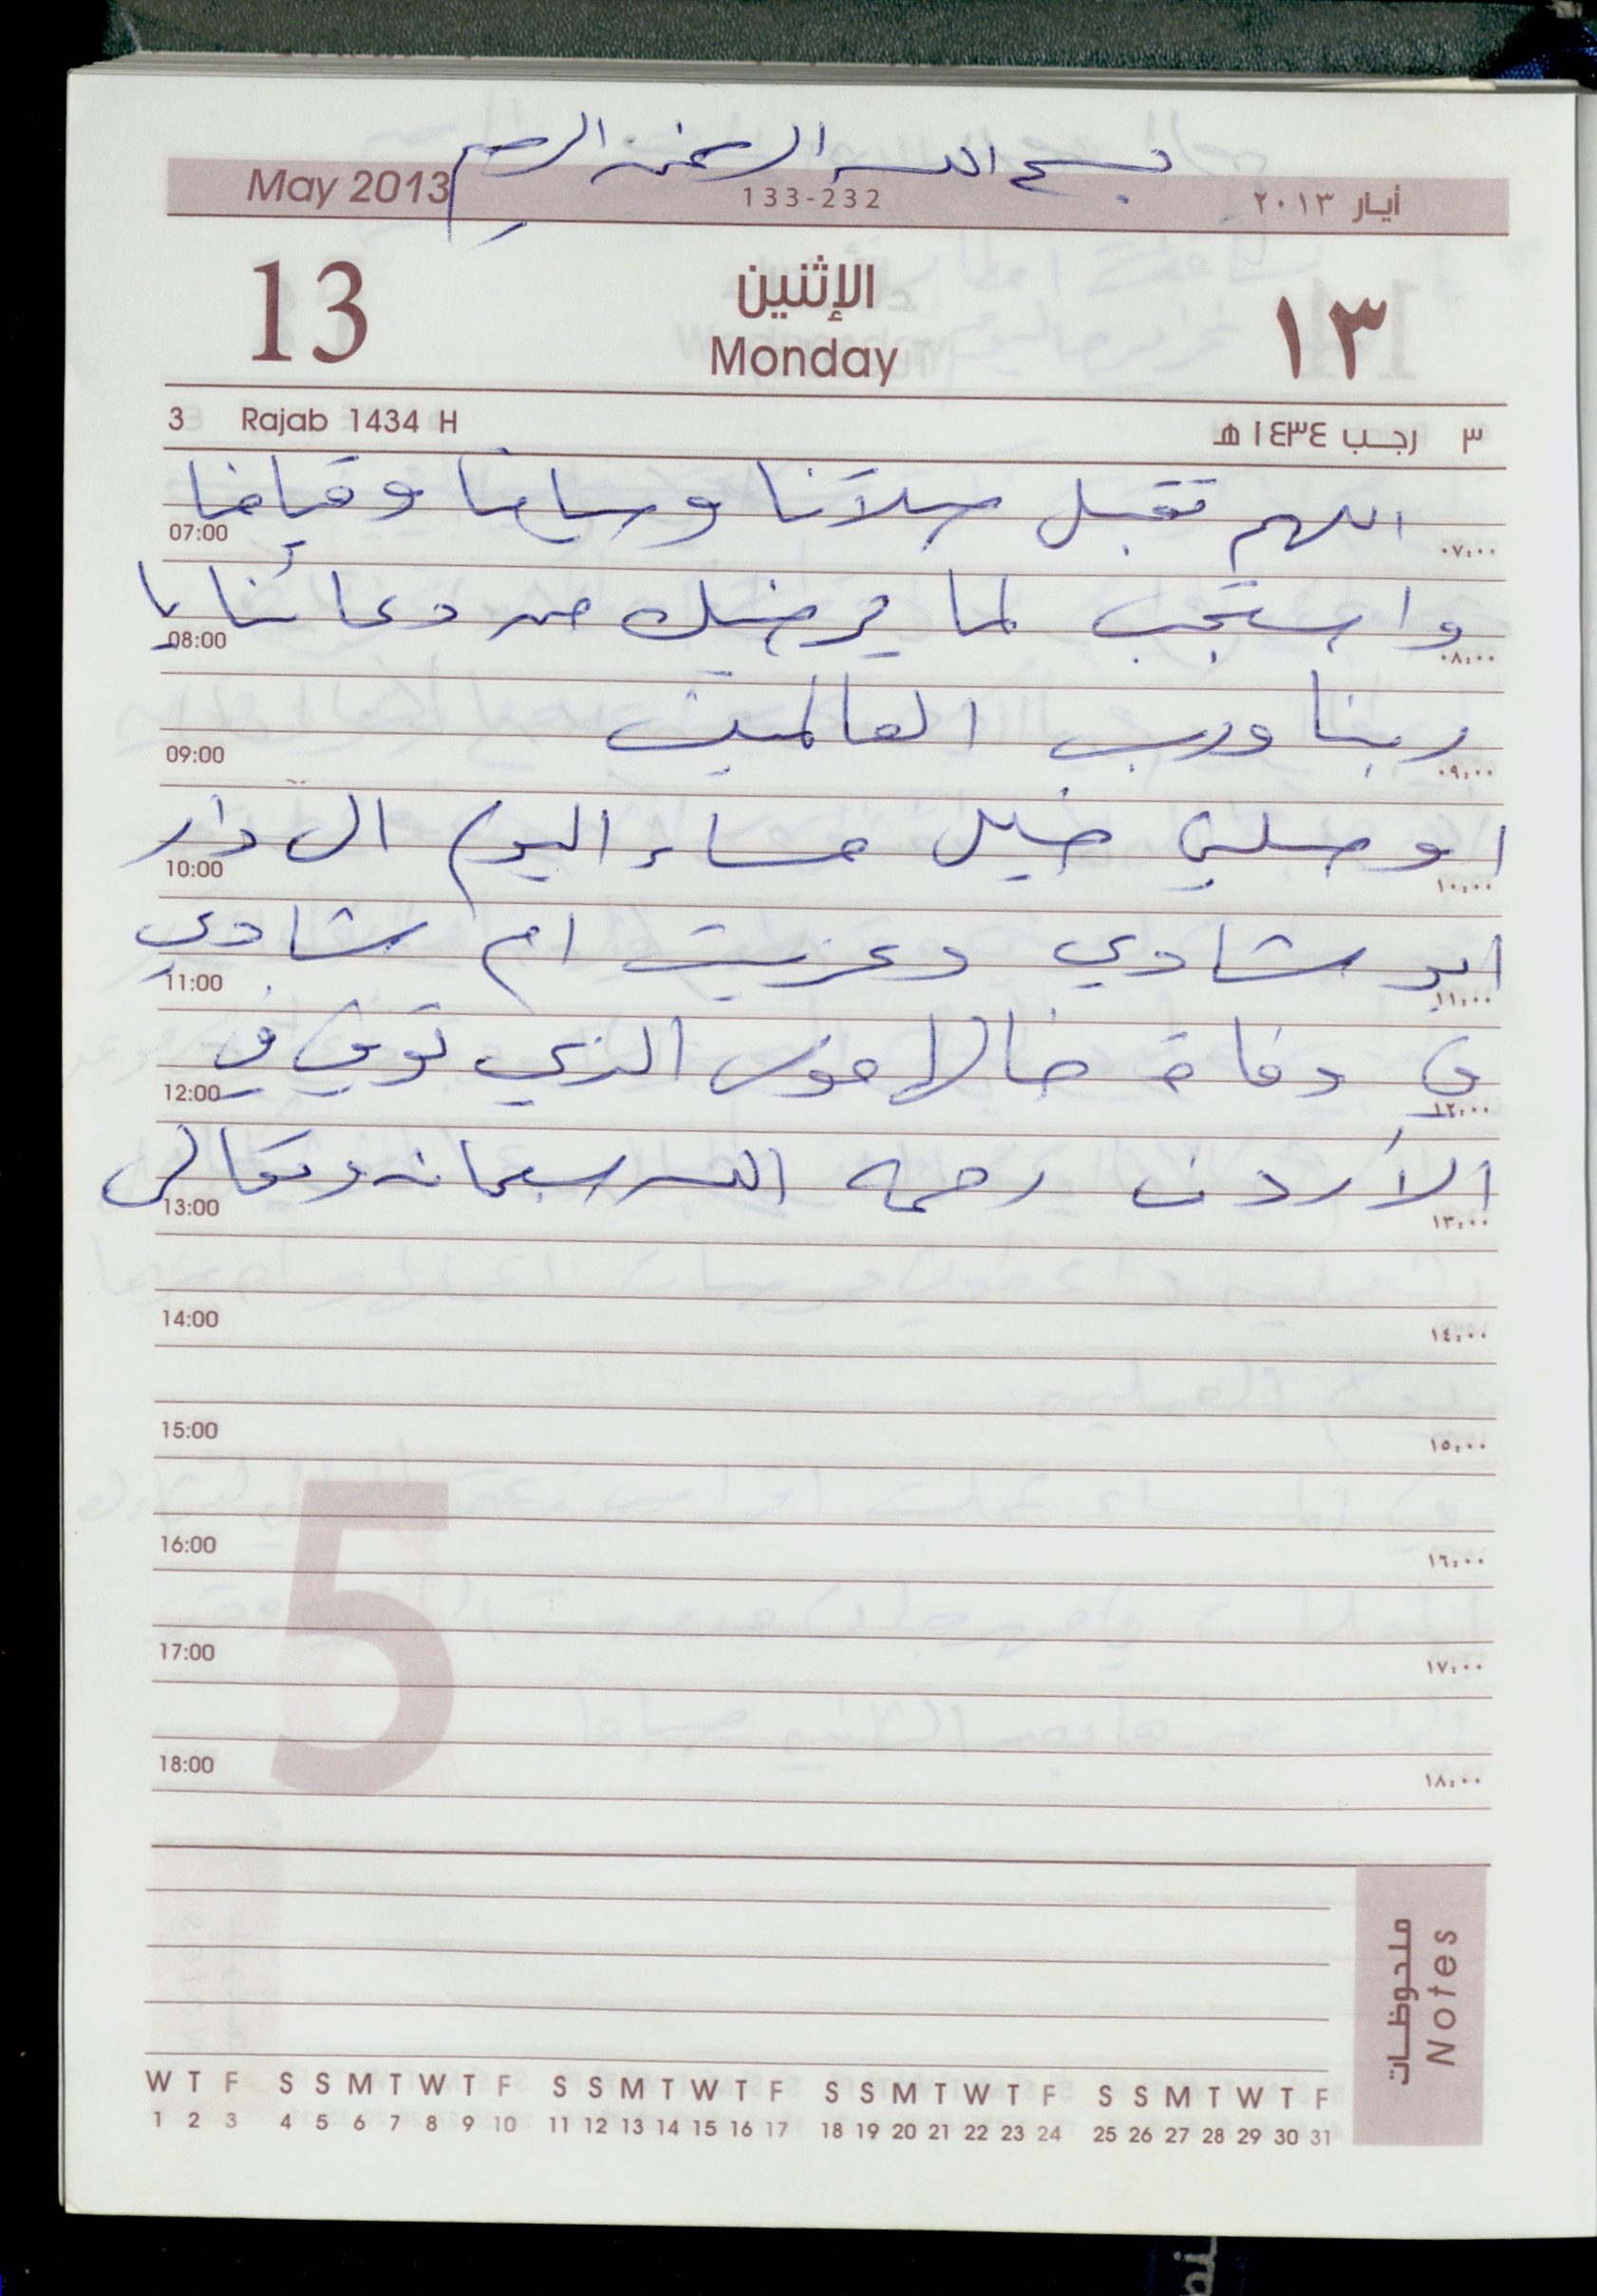 بسم الله الرحمن الرحيم
May 2013 133-232 أيار ٢٠١٣
13 الإثنين ١٣
Monday
3 Rajab 1434 H ٣ رجب ١٤٣٤ هـ
اللهم تقبل صلاتنا وقيامنا
07:00 ٠٧:٠٠
واستجب لما يرضيك من دعائنا يا
08:00 ٠٨:٠٠
ربنا ورب العالمين
09:00 ٠٩:٠٠
مساء اليوم الى دار
10:00 ١٠:٠٠
ابو شادي وعزيت ام شادي
11:00 ١١:٠٠
في وفاة خالها الذي توفي في
12:00 ١٢:٠٠
الأردن رحمه الله سبحانه وتعالى
13:00 ١٣:٠٠
14:00 ١٤:٠٠
15:00 ١٥:٠٠
5
16:00 ١٦:٠٠
17:00 ١٧:٠٠
18:00 ١٨:٠٠
ملحوظات
Notes
W T F S S M T W T F S S M T W T F S S M T W T F S S M T W T F
1 2 3 4 5 6 7 8 9 10 11 12 13 14 15 16 17 18 19 20 21 22 23 24 25 26 27 28 29 30 31